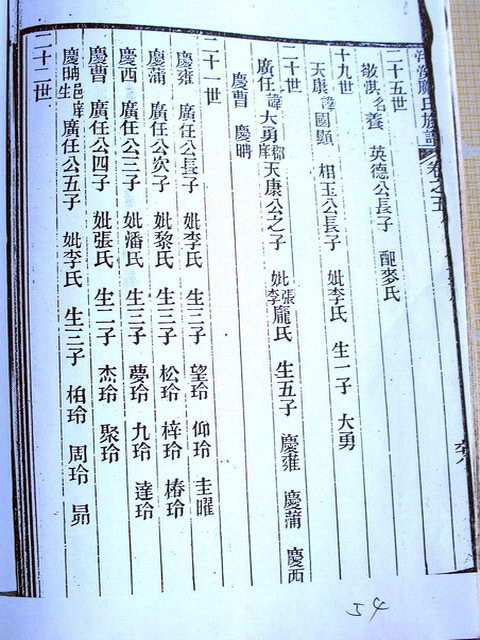 氏族譜 卷之五
二十五世
敬淇名養 英德公長子 配麥氏
十九世
天康諱國顯 相玉公長子 妣李氏 生一子 大勇
二十世
廣任諱大勇郡庠天康公之子 妣張李龐氏 生五子 慶雍 慶蒲 慶西
慶曹 慶晭
二十一世
慶雍 廣任公長子 妣李氏 生三子 望玲 仰玲 圭曜
慶蒲 廣任公次子 妣黎氏 生三子 松玲 梓玲 椿玲
慶西 廣任公三子 妣潘氏 生三子 夢玲 九玲 達玲
慶曹 廣任公四子 妣張氏 生二子 杰玲 聚玲
慶晭邑庠生 廣任公五子 妣李氏 生三子 柏玲 周玲 昴
二十二世
54